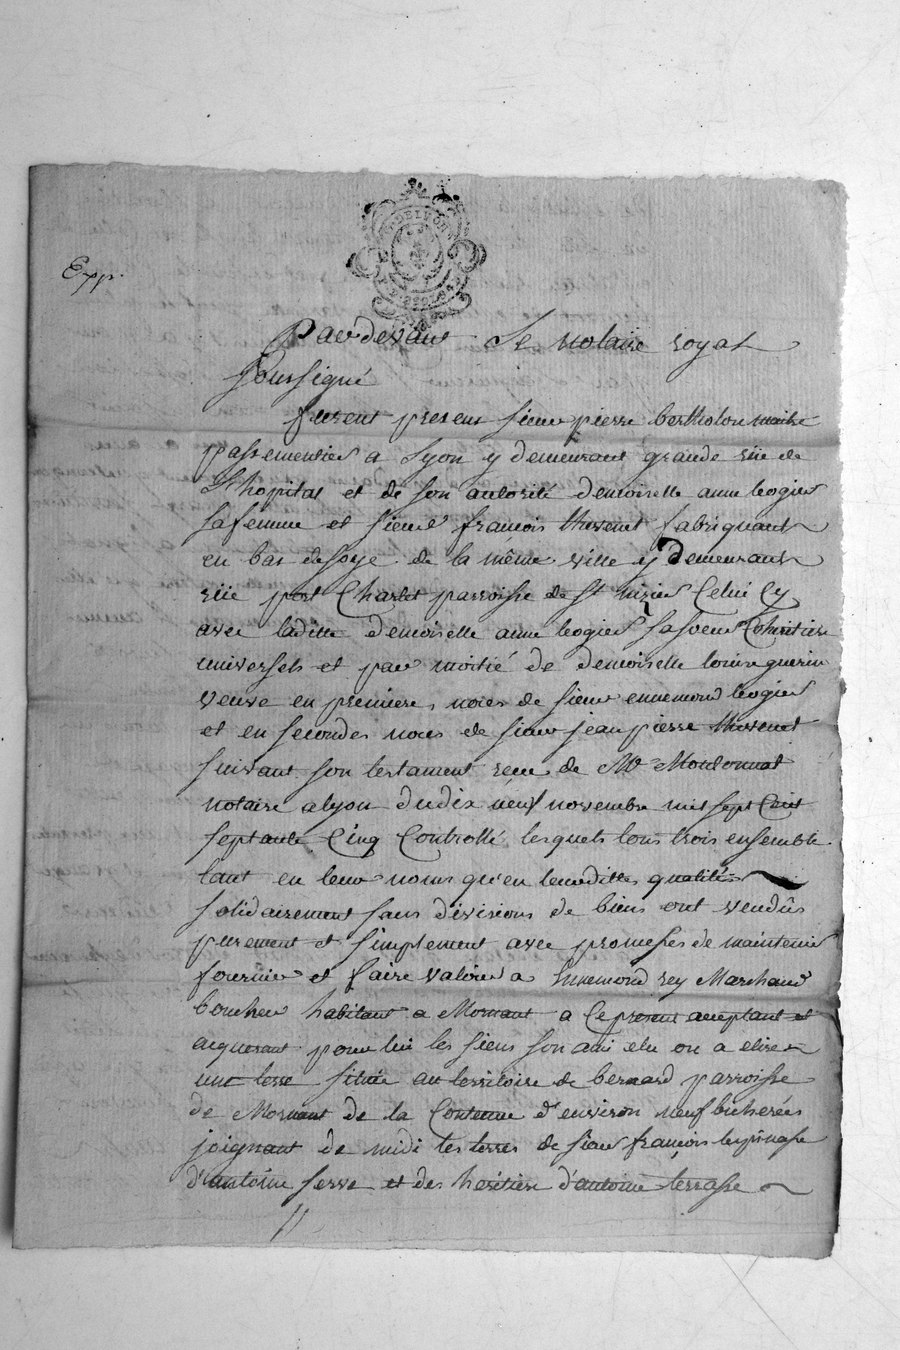 G. DE LYON
Exp.
Pardevant Le notaire royal
Soussigné
furent present sieur pierre bertholon maitre
passementier a Lyon y demeurant grande rüe de
L'hopital et de son autorité demoiselle anne bogier
sa femme et sieur françois thevenet fabriquant
en bas de soye de la même ville y demeurant
rüe port Charlet parroisse de st nizier Celui Cy
avec laditte demoiselle anne bogier sa soeur Coheritiers
universels et par moitié de demoiselle louise guerin
veuve en premieres noces de sieur ennemond bogier
et en secondes noces de sieur jean pierre thevenet
suivant son testament recu de Me Montonnat
notaire a lyon du dix neuf novembre mil sept Cent
septante Cinq Controllé lesquels tous trois ensemble
tant en leur noms qu'en leurdittes qualités
solidairement sans divisions de biens ont vendûs
purement et simplement avec promesses de maintenir
fournir et faire valoir a Ennemond rey Marchand
boucher habitant a Mornant a Ce present acceptant et
acquerant pour lui les siens son ami elu ou a elire
une terre située au territoire de bernard parroisse
de Mornant de la Contenue d'environ neuf bicherées
joignant de midi les terres de sieur françois lespinasse
d'antoine serve et des heritiers d'antoine terrasse